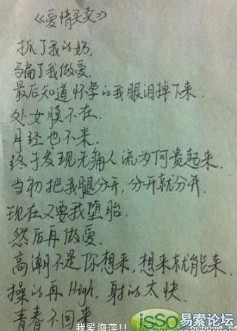 《爱情买卖》
抓了我的奶
骗了我做爱,
最后知道怀孕的我眼泪掉下来.
处女膜不在,
月经也不来.
终于发现无痛人流为何贵起来.
当初把我腿分开,分开就分开.
现在又要我堕胎,
然后再做爱.
高潮不是你想来,想来就能来.
操的再High,射的太快.
青春不回来
我爱海莲!!
isso易索论坛